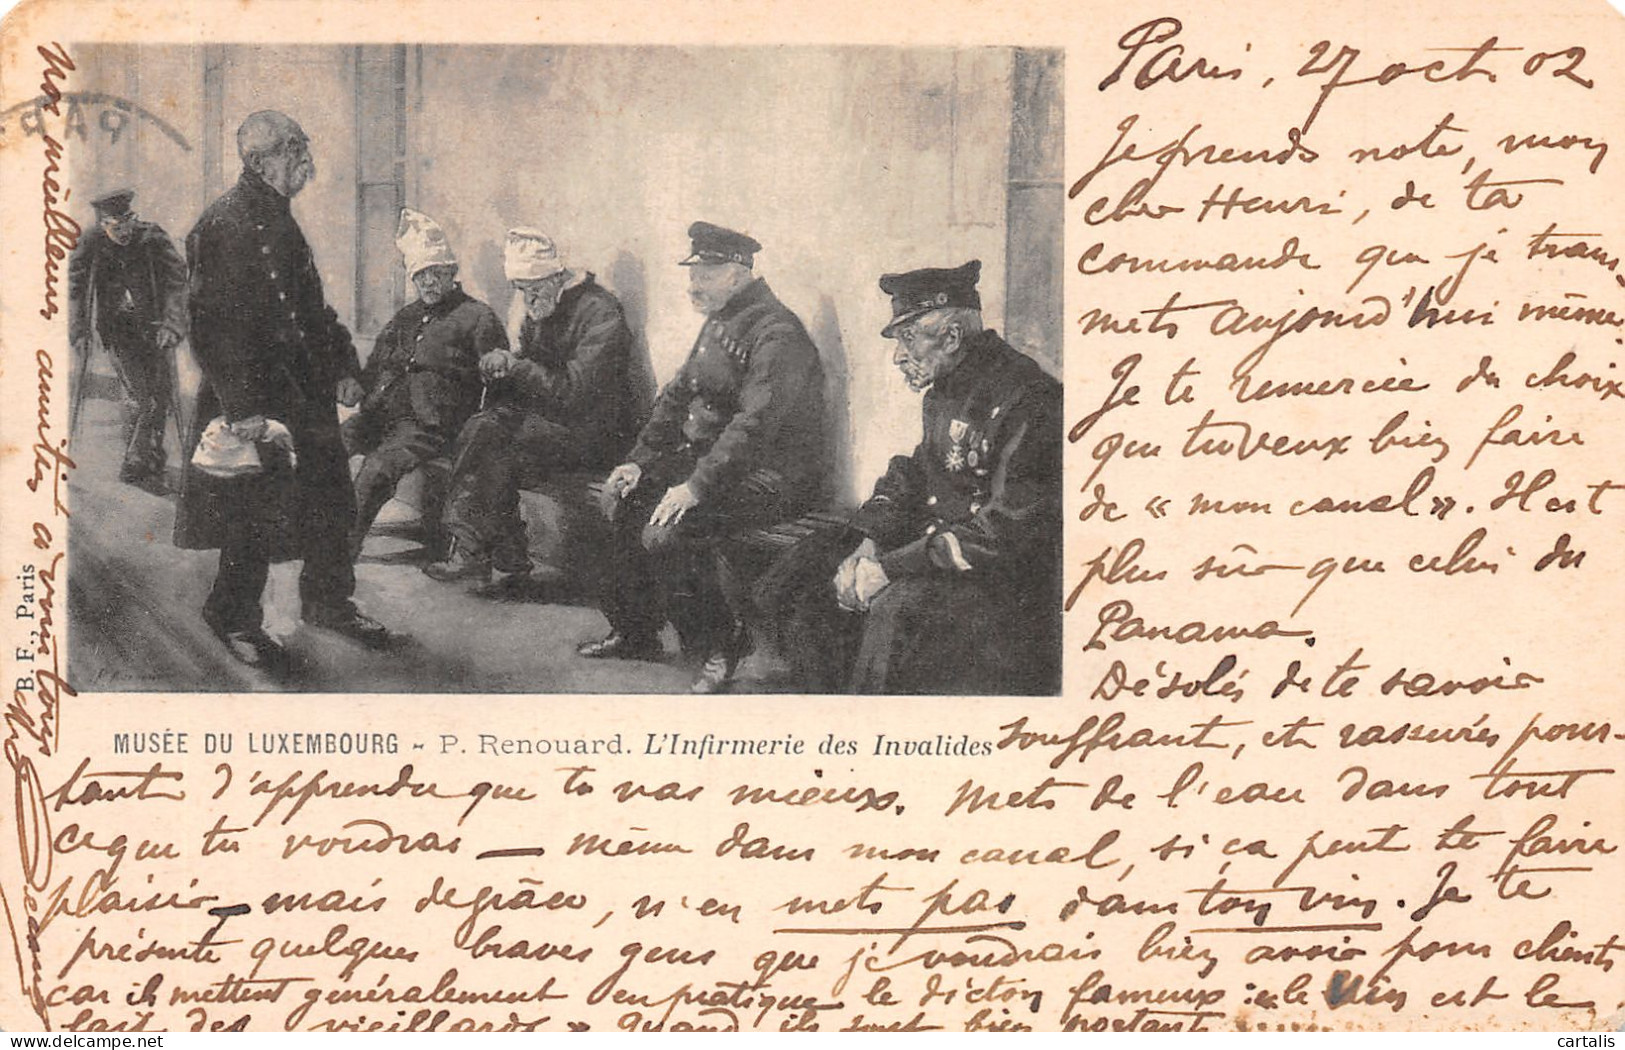 Paris, 27 oct. 02
Je prends note, mon
cher Henri, de ta
commande que je trans-
mets aujourd'hui même.
Je te remercie du choix
que tu veux bien faire
de « mon canal ». Il est
plus sûr que celui du
Panama.
Désolés de te savoir
souffrant, et rassurés pour-
tant d'apprendre que tu vas mieux. Mets de l'eau dans tout
ce que tu voudras — même dans mon canal, si ça peut te faire
plaisir — mais de grâce, n'en mets pas dans ton vin. Je te
présente quelques braves gens que je voudrais bien avoir pour clients
car ils mettent généralement en pratique le dicton fameux : « le Vin est le
lait des vieillards » quand ils sont bien portants
Nos meilleures amitiés à vous tous
MUSÉE DU LUXEMBOURG - P. Renouard. L'Infirmerie des Invalides
B. F., Paris
PAR
cartalis